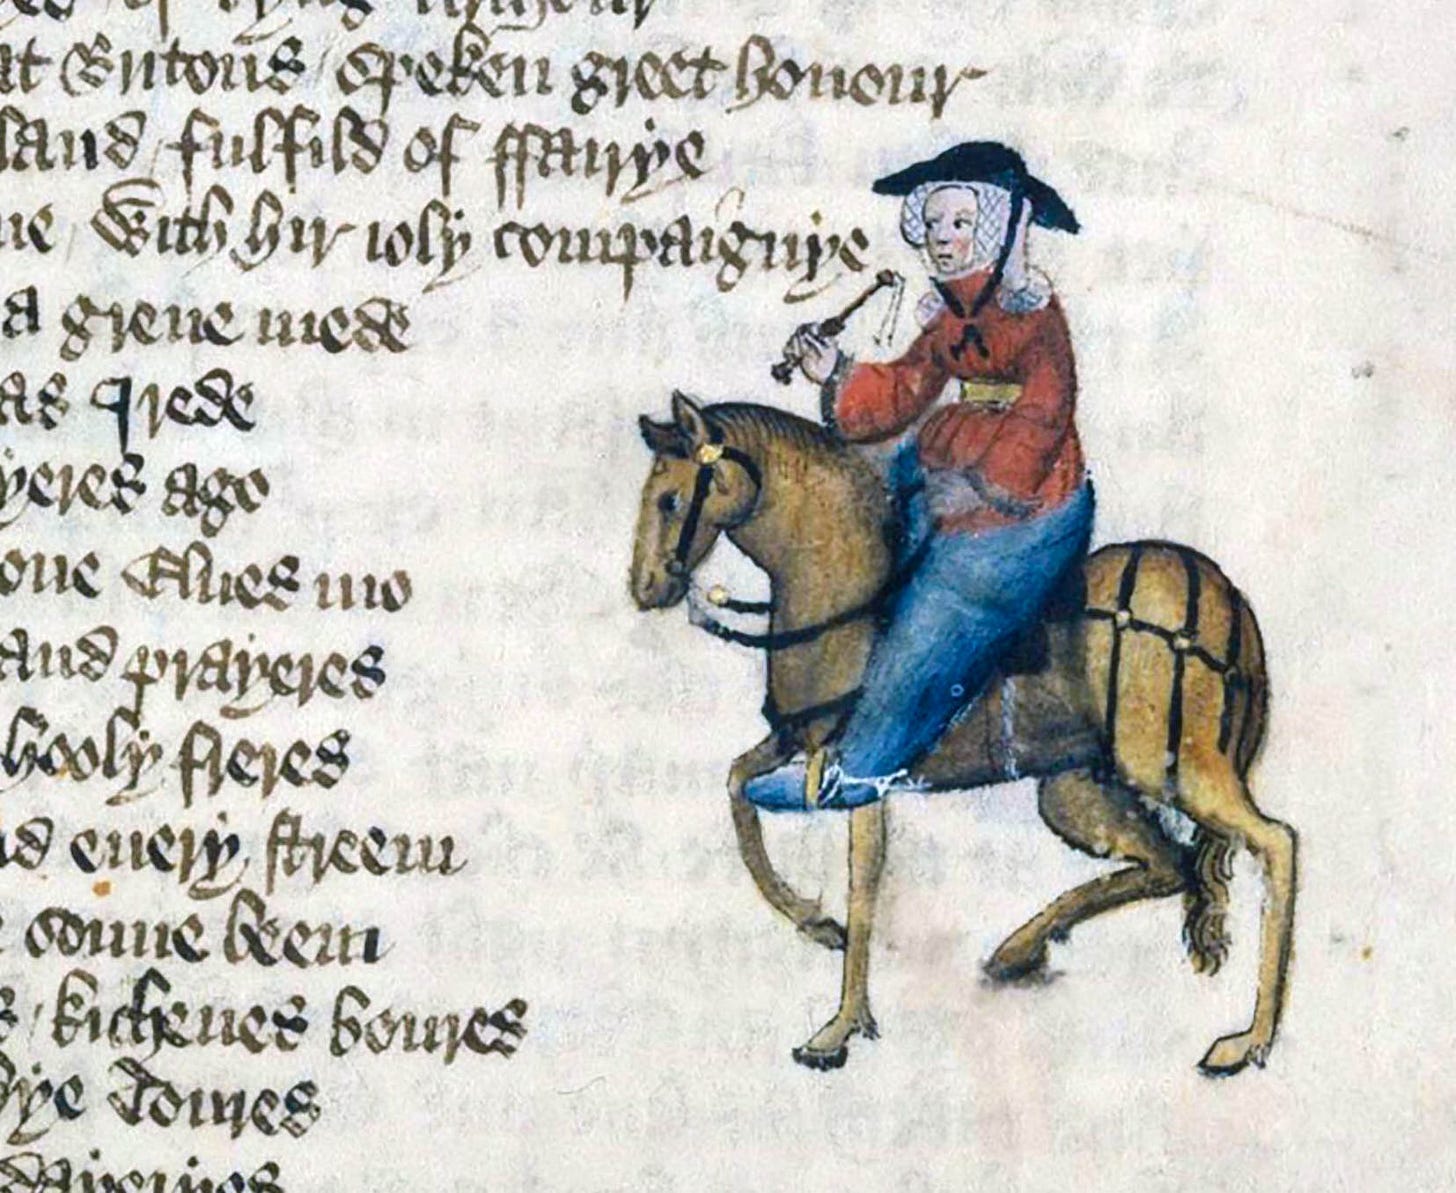 of kyng Arthour
at Britons / speken greet honour
land / fulfild of ffairye
ne / With hir ioly compaignye
a grene mede
as I rede
yeres ago
one Elues mo
and prayeres
hooly freres
nd euery streem
e sonne beem
s / kichenes boures
ye Toures
dayeryes